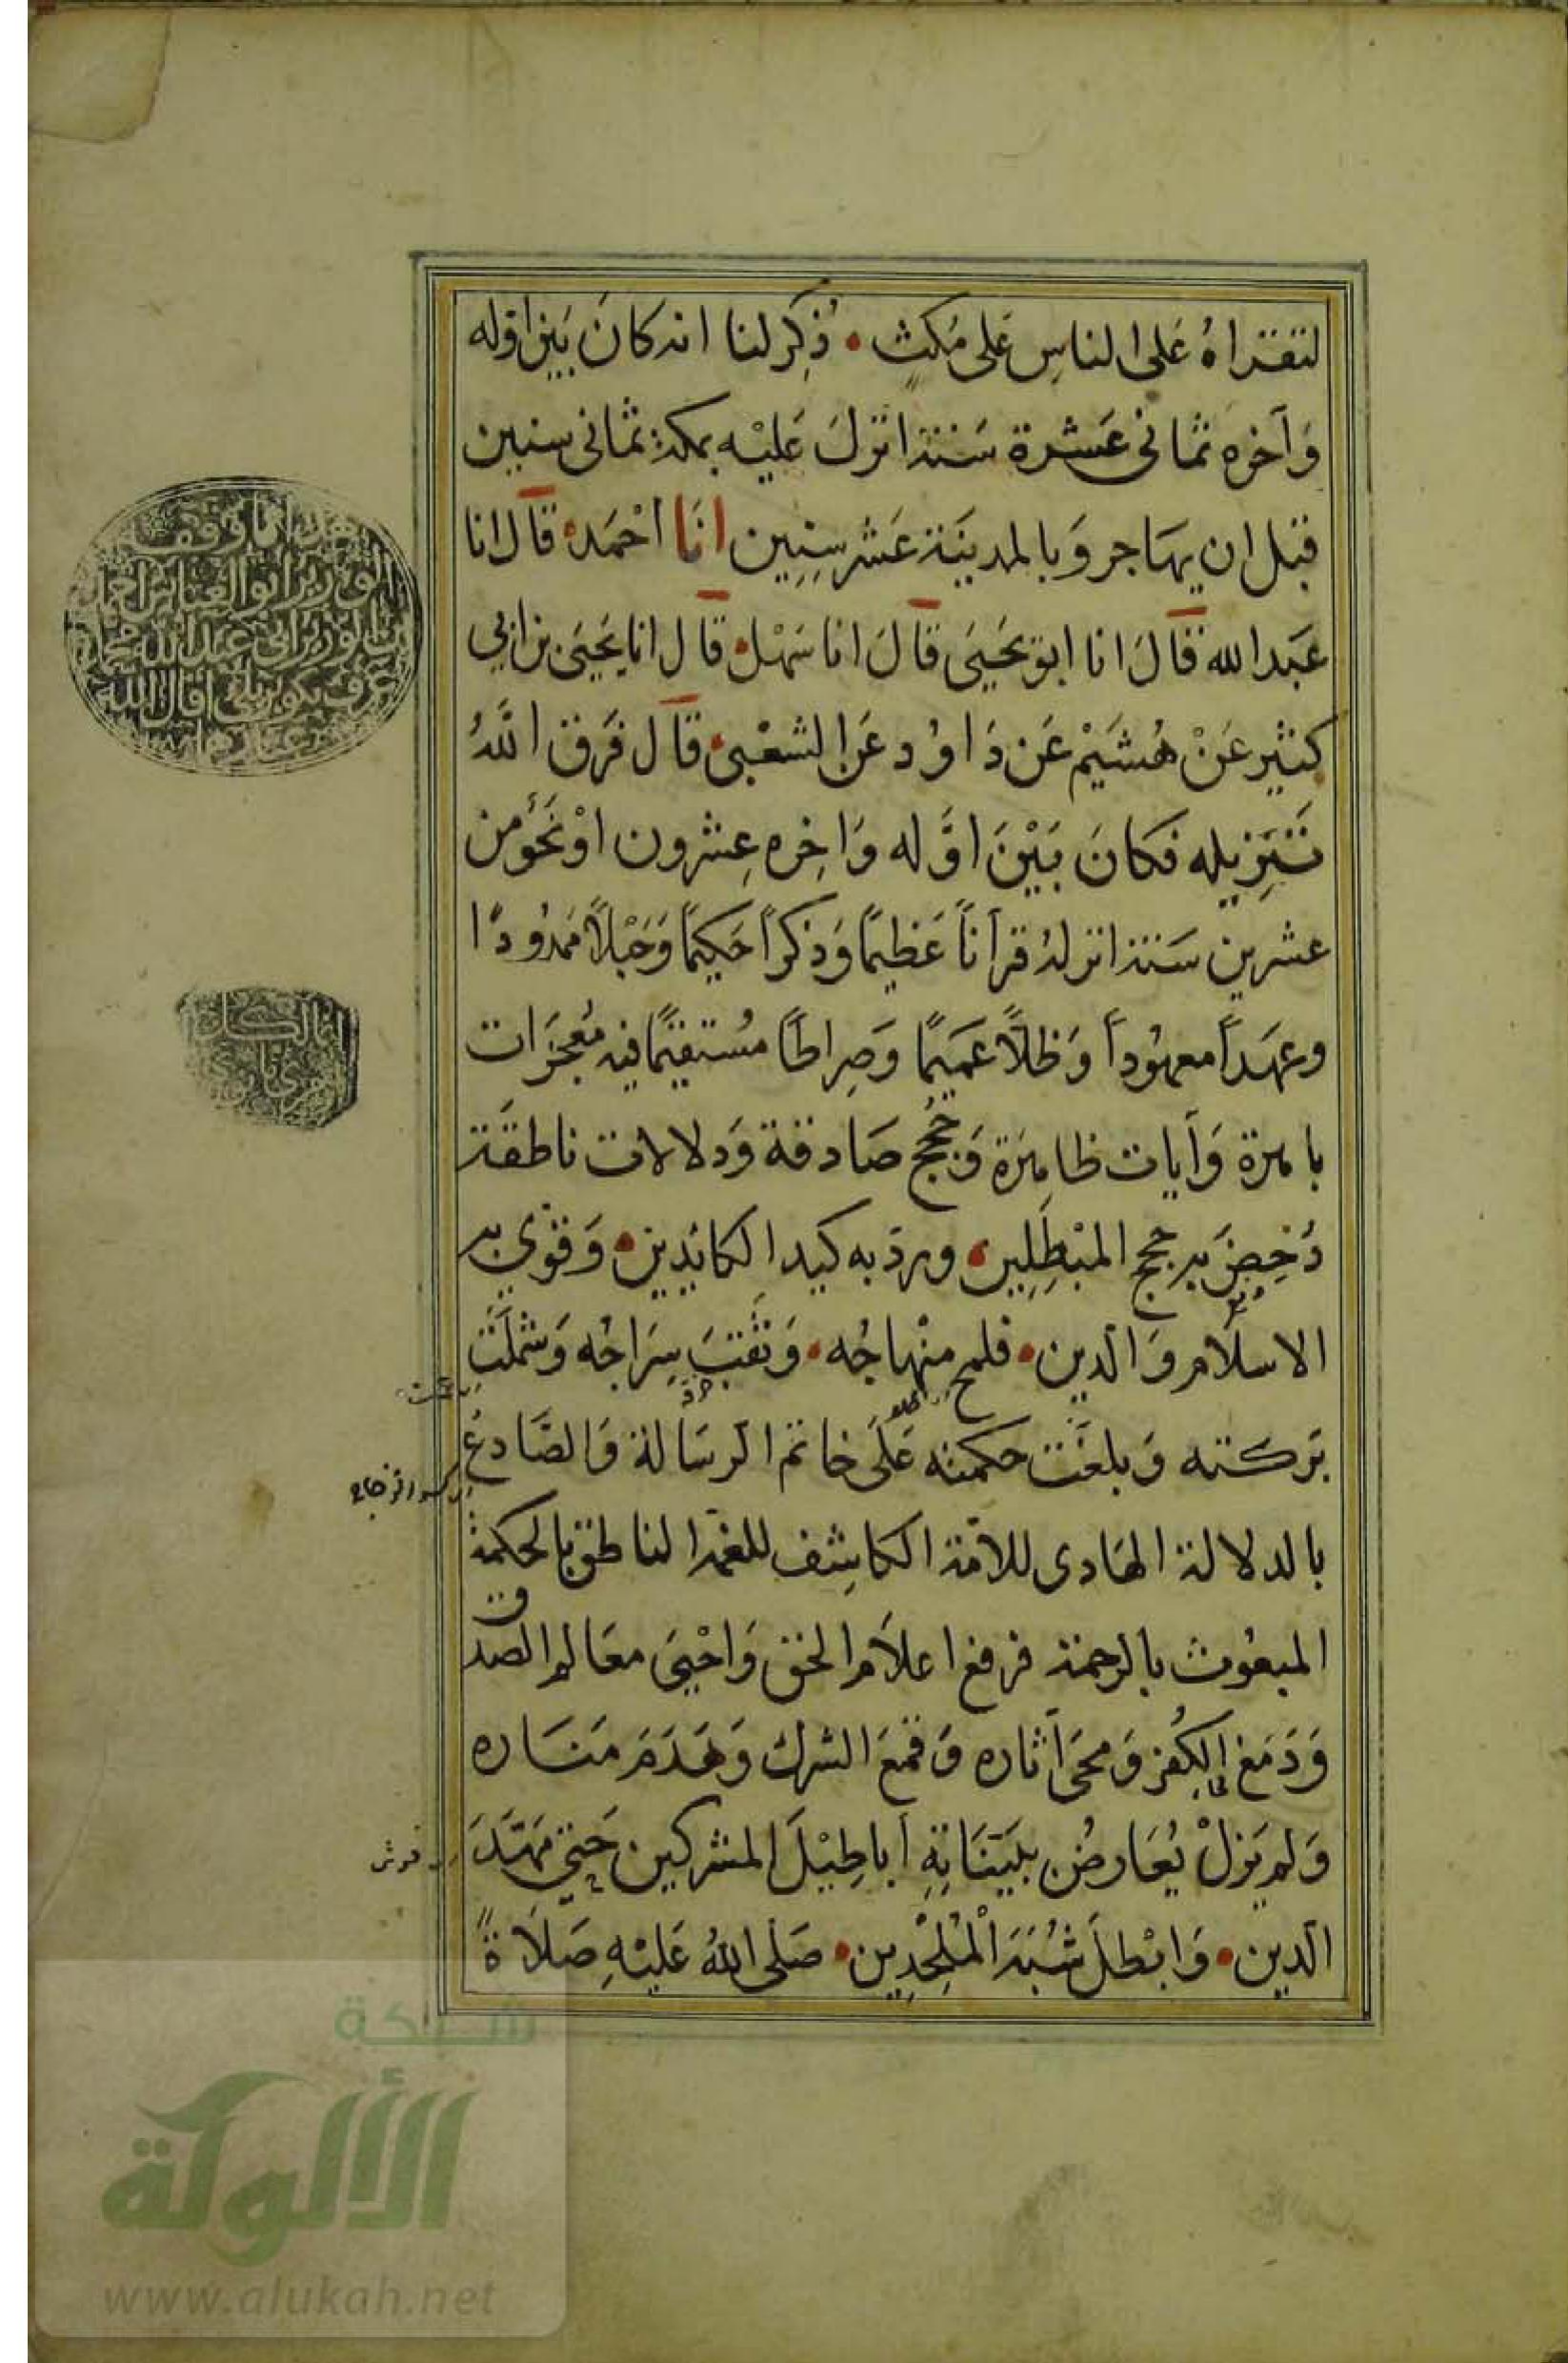 لتقراهُ عَلى الناسِ عَلى مُكثٍ ذُكِرلنا انه كانَ بَين اوله
وَآخره ثمانى عَشرة سَنة انزلَ عَليْه بمكة ثمانى سنين
قبل ان يهَاجر وَبالمدينَة عَشر سِنِين انَا احْمَد قَال انا
عَبد الله قَالَ انا ابو يَحيَى قَالَ انا سَهْل قَال انا يَحيَى بن ابي
كثيرعَنْ هُشَيْم عَن دَاوُد عَن الشعْبى قَال فَرَق اللَّهُ
تَنزِيله فكانَ بَيْنَ اوَّله وَاخِره عِشرون اوْ نَحْوٌ من
عشرين سَنة انزلهُ قرآناً عَظيمًا وَذكراً حَكيمًا وَحَبْلاً مَمدُودًا
وعهَداً معهوُداً وَظلاًّ عَميمًا وَصِراطًا مُستقيمًا فيه مُعجزَات
باهرة وَآيات ظاهِرَة وَحُجج صَادقة وَدلالات ناطقَة
دُحِضَ به حجج المبْطِلِين ورد به كيد الكائدِين وَقوّي به
الاسلام وَالدين فلمح منْهاجُه وَثقبَ سِرَاجُه وَشملَت
بَركته وَبلغَت حكمته عَلَى خاتم الرسَالة وَالصَّادع
بالدلالة الهَادى للامّة الكاشِف للغمّة الناطق بالحكمة
المبعُوث بالرحمة فرفع اعلاَم الحق وَاحْييَ معَالم الصدق
وَدَمَغ الكُفر وَمحىَ آثاره وَقمَعَ الشرك وَهَدَمَ مَنَاره
وَلم يَزلْ يُعَارضُ ببَيّنَاتِهِ اباطِيْلَ المشركين حَتى مَهَّدَ
الدين وَابْطلَ شُبَهَ الْمُلْحِدِين صَلى اللهُ عَليْهِ صَلاَةً
شبكة
الألوكة
www.alukah.net